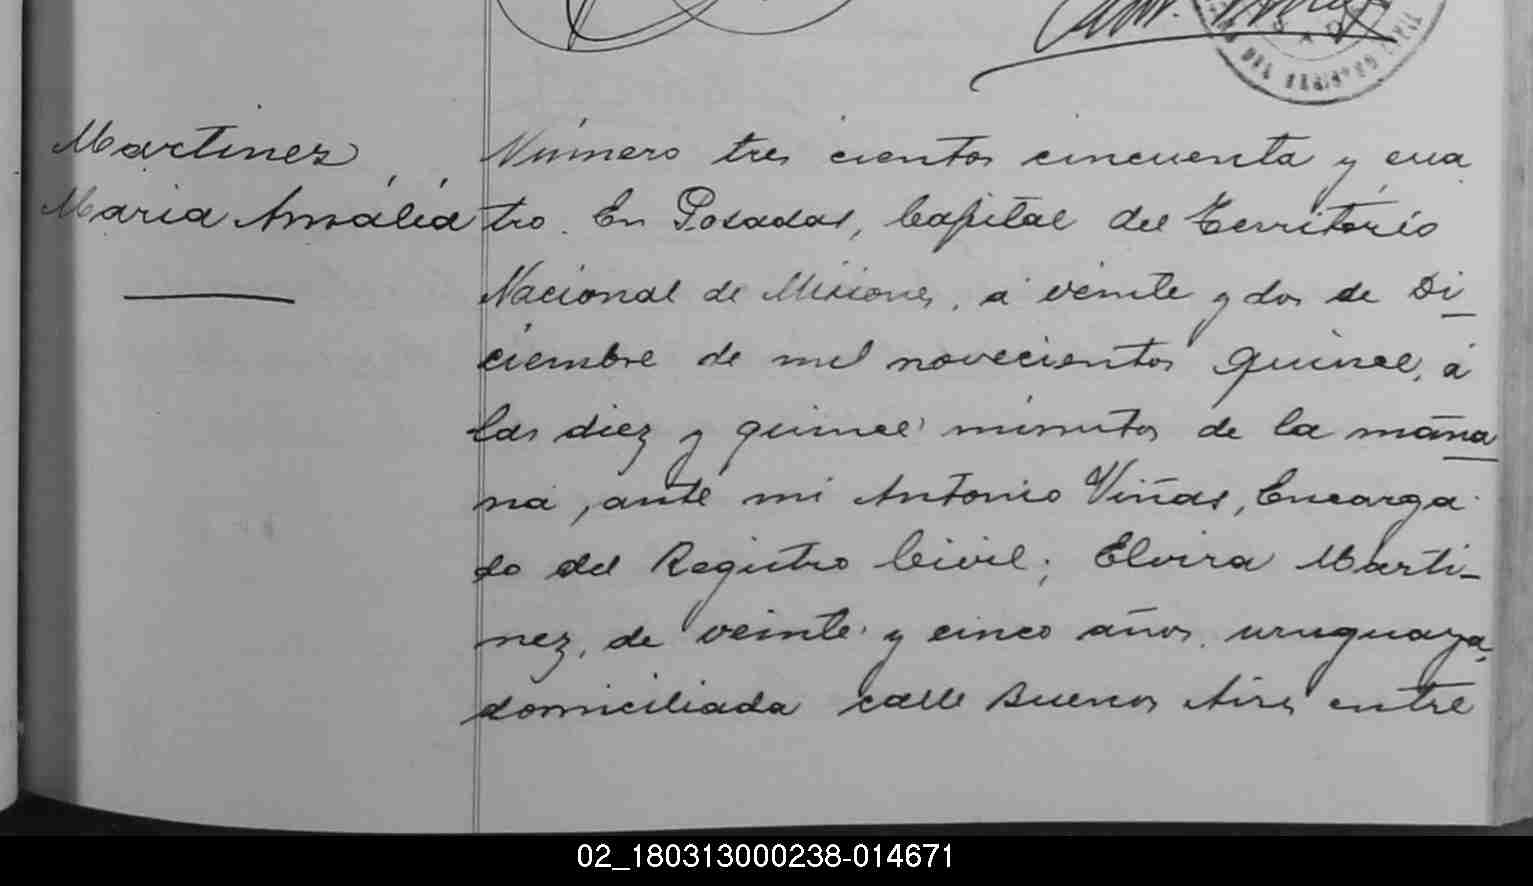 DEL REGISTRO CIVIL
Martinez
Maria Amália
Número tres cientos cincuenta y cua
tro. En Posadas, Capital del Territorio
Nacional de Misiones, á veinte y dos de Di
ciembre de mil novecientos quince, á
las diez y quince minutos de la mañana
na, ante mi Antonio Viñas, Encarga
do del Registro Civil; Elvira Marti-
nez, de veinte y cinco años, uruguaya,
domiciliada calle Buenos Aires entre
02_180313000238-014671